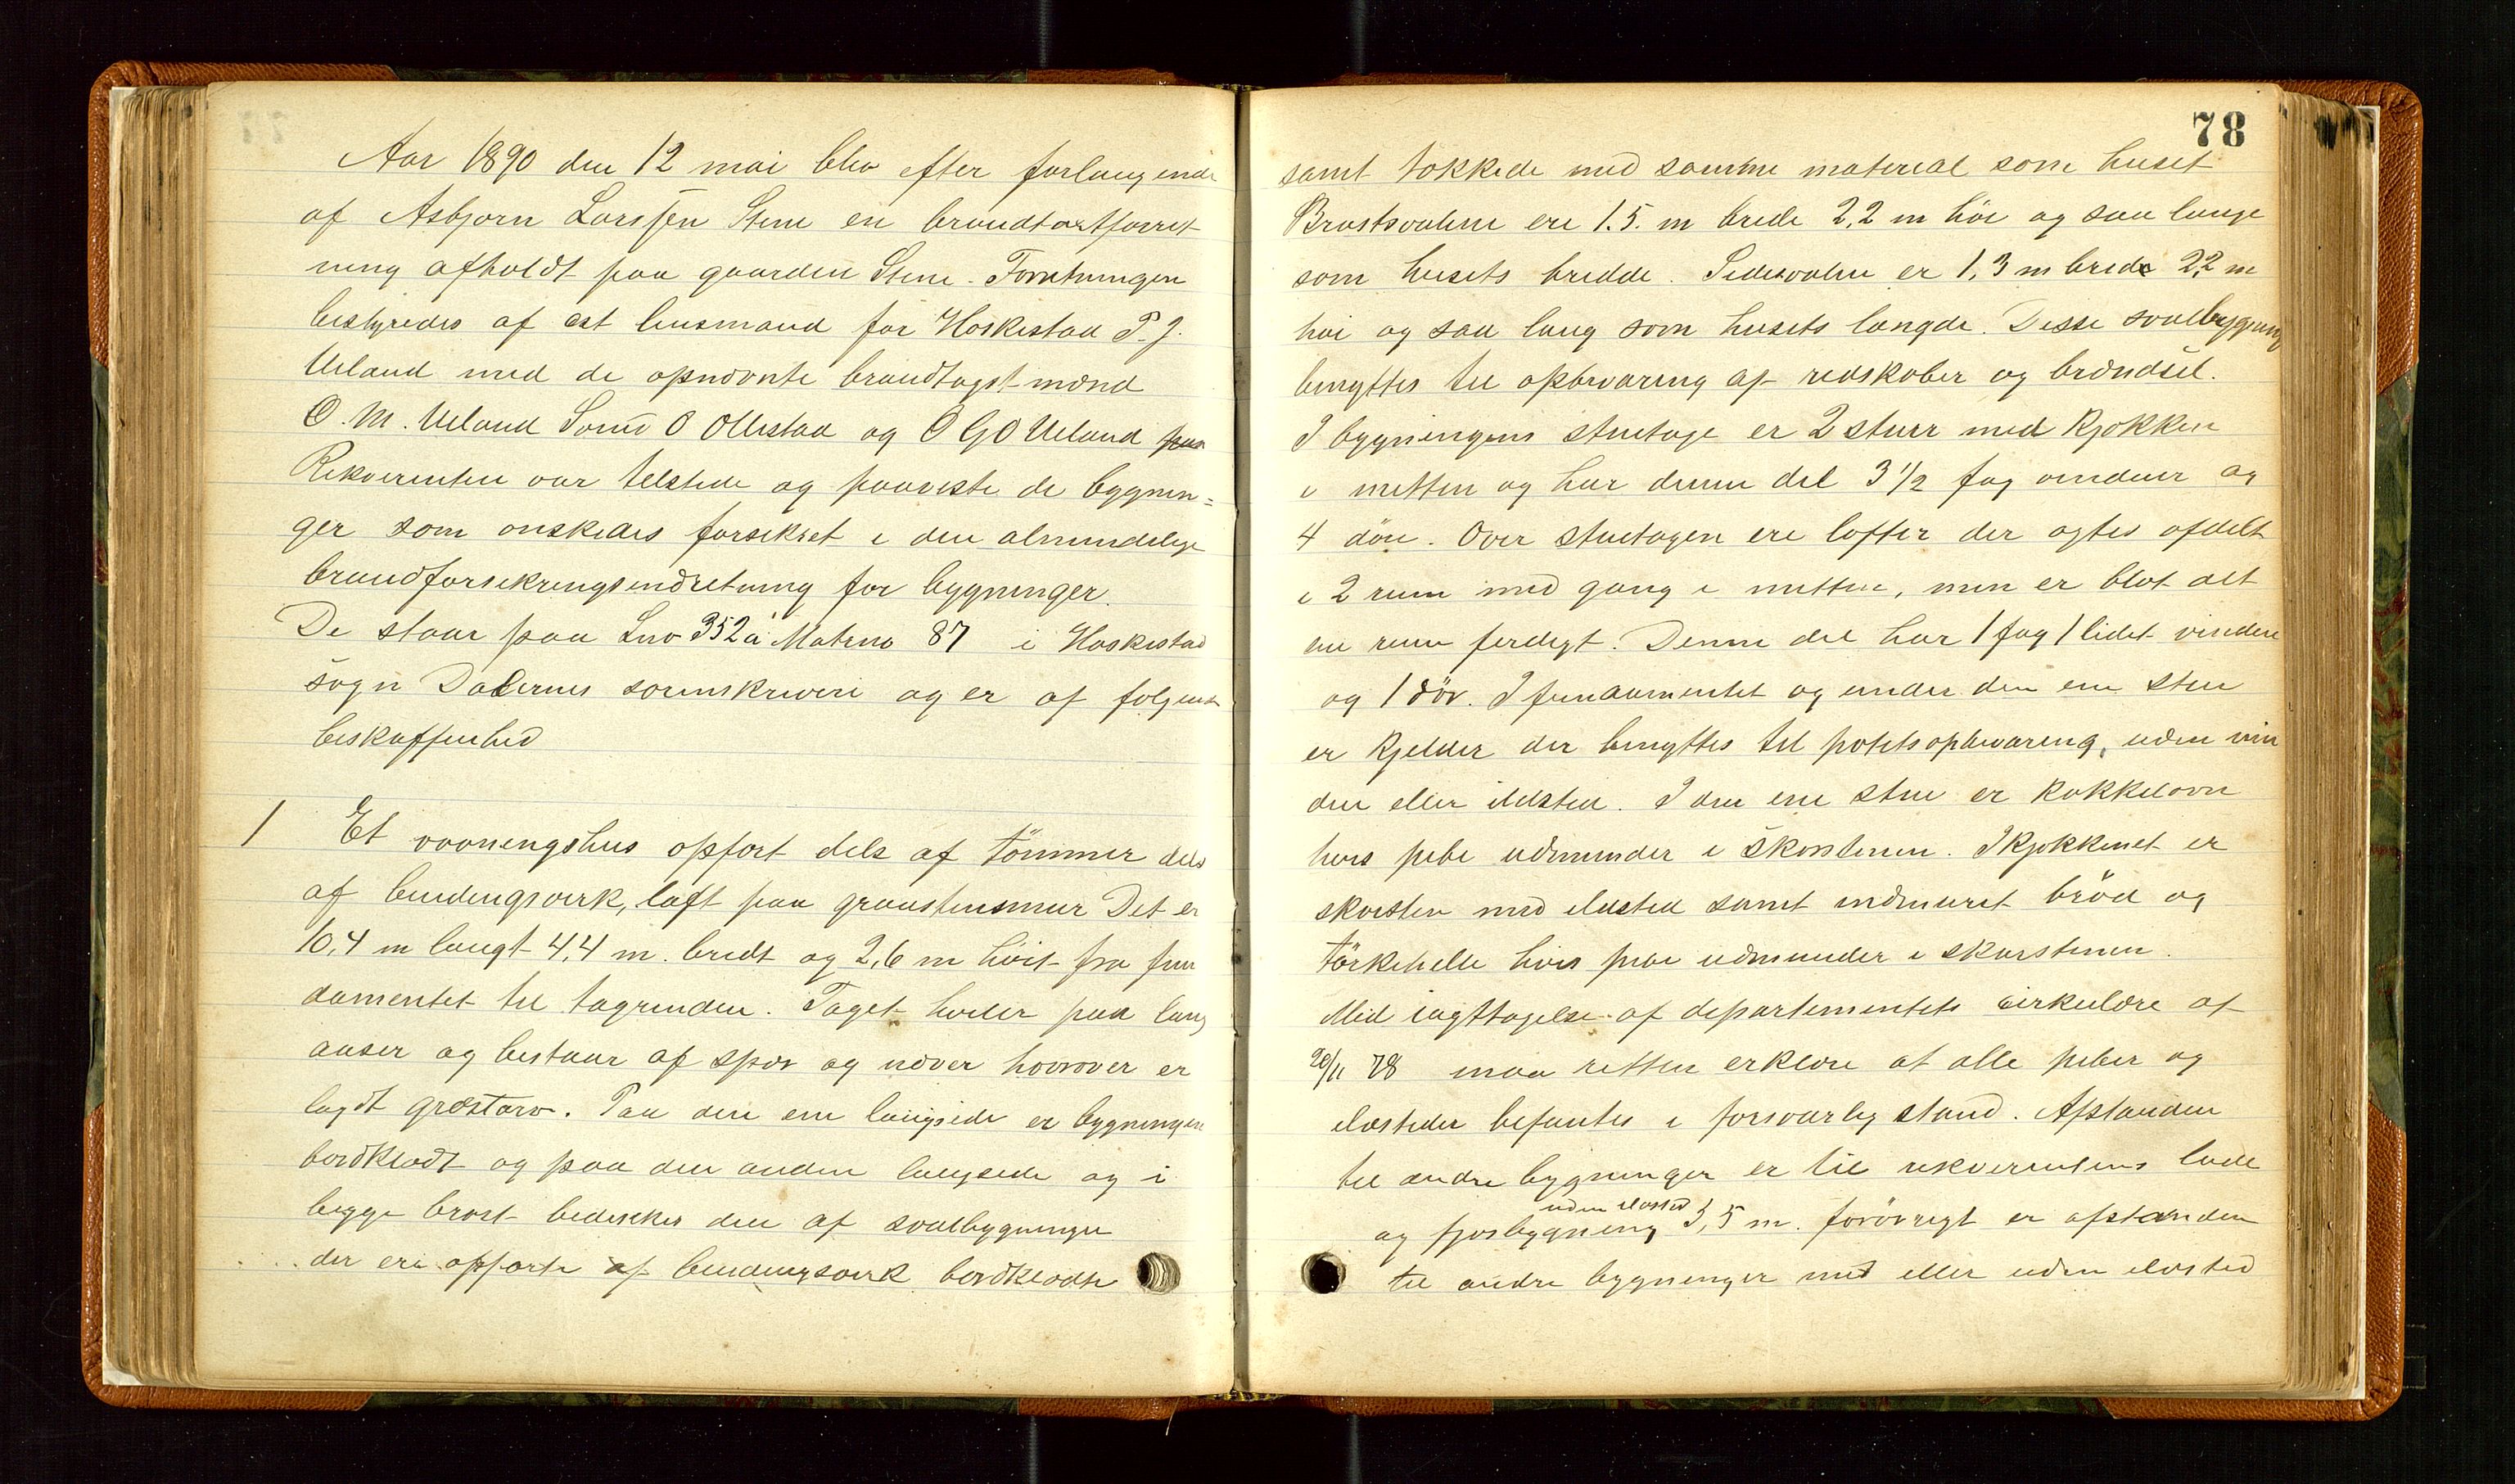 Aar 1890 den 12 mai blev efter forlangende
af Asbjørn Larssen Stene en brandtaxtforret
ning afholdt paa gaarden Stene. Forretningen
bestyredes af cst lensmand for Heskestad P. J.
Ueland med de opnævnte brandtagst-mænd
O. M. Ueland O Ollestad og O G O Ueland
Rekverenten var tilstede og paaviste de bygnin=
ger som ønskedes forsikret i den almindelige
brandforsikringsindretning for bygninger.
De staar paa Lno 352a Matrno 87 i Heskestad
sogn Dalernes sorenskriveri og er af følgende
beskaffenhed
1 Et vaaningshus opført dels af tömmer dels
af bindingsverk, lagt paa graastensmur Det er
10,4 m langt 4,4 m. bredt og 2,6 m höit fra fun
damentet til tagrenden. Taget hviler paa lang
aaser og bestaar af spær og næver hvorover er
lagt græstorv. Paa den ene langside er bygningen
bordklædt og paa den anden langside og i
begge brøst bedækkes den af svalbygninger
der ere opførte af bindingsverk bordklædte
78
samt tækkede med samme material som huset
Brøstsvalene ere 1.5. m brede 2,2 m höi og saa lange
som husets bredde. Sidesvalen er 1,3 m brede 2,2 m
høi og saa lang som husets længde. Disse svalbygning
benyttes til opbevaring af redskaber og brændsel.
I bygningens stuetage er 2 stuer med kjøkken
i mitten og har denne del 3 1/2 fag vinduer og
4 döre. Over stuetagen ere lofter der agtes afdelt
i 2 rum med gang i mitten, men er blot det
ene rum ferdigt. Denne del har 1 fag 1 lidet vindue
og 1 dör. I fundamentet og under den ene stue
er kjelder der benyttes til potetsopbevaring, uden vin
due eller ildsted. I den ene stue er kakkelovn
hvis pibe udmunder i skorstenen. I kjøkkenet er
skorsten med ildsted samt indmuret bröd og
törkehelle hvis pibe udmunder i skorstenen.
Med iagttagelse af departementets cirkulære af
20/11 78 maa retten erklære at alle piber og
ildsteder befantes i forsvarlig stand. Afstanden
til andre bygninger er til rekverentens lade
uden ildsted
og fjøsbygning 3,5 m. forövrigt er afstanden
til andre bygninger med eller uden ildsted